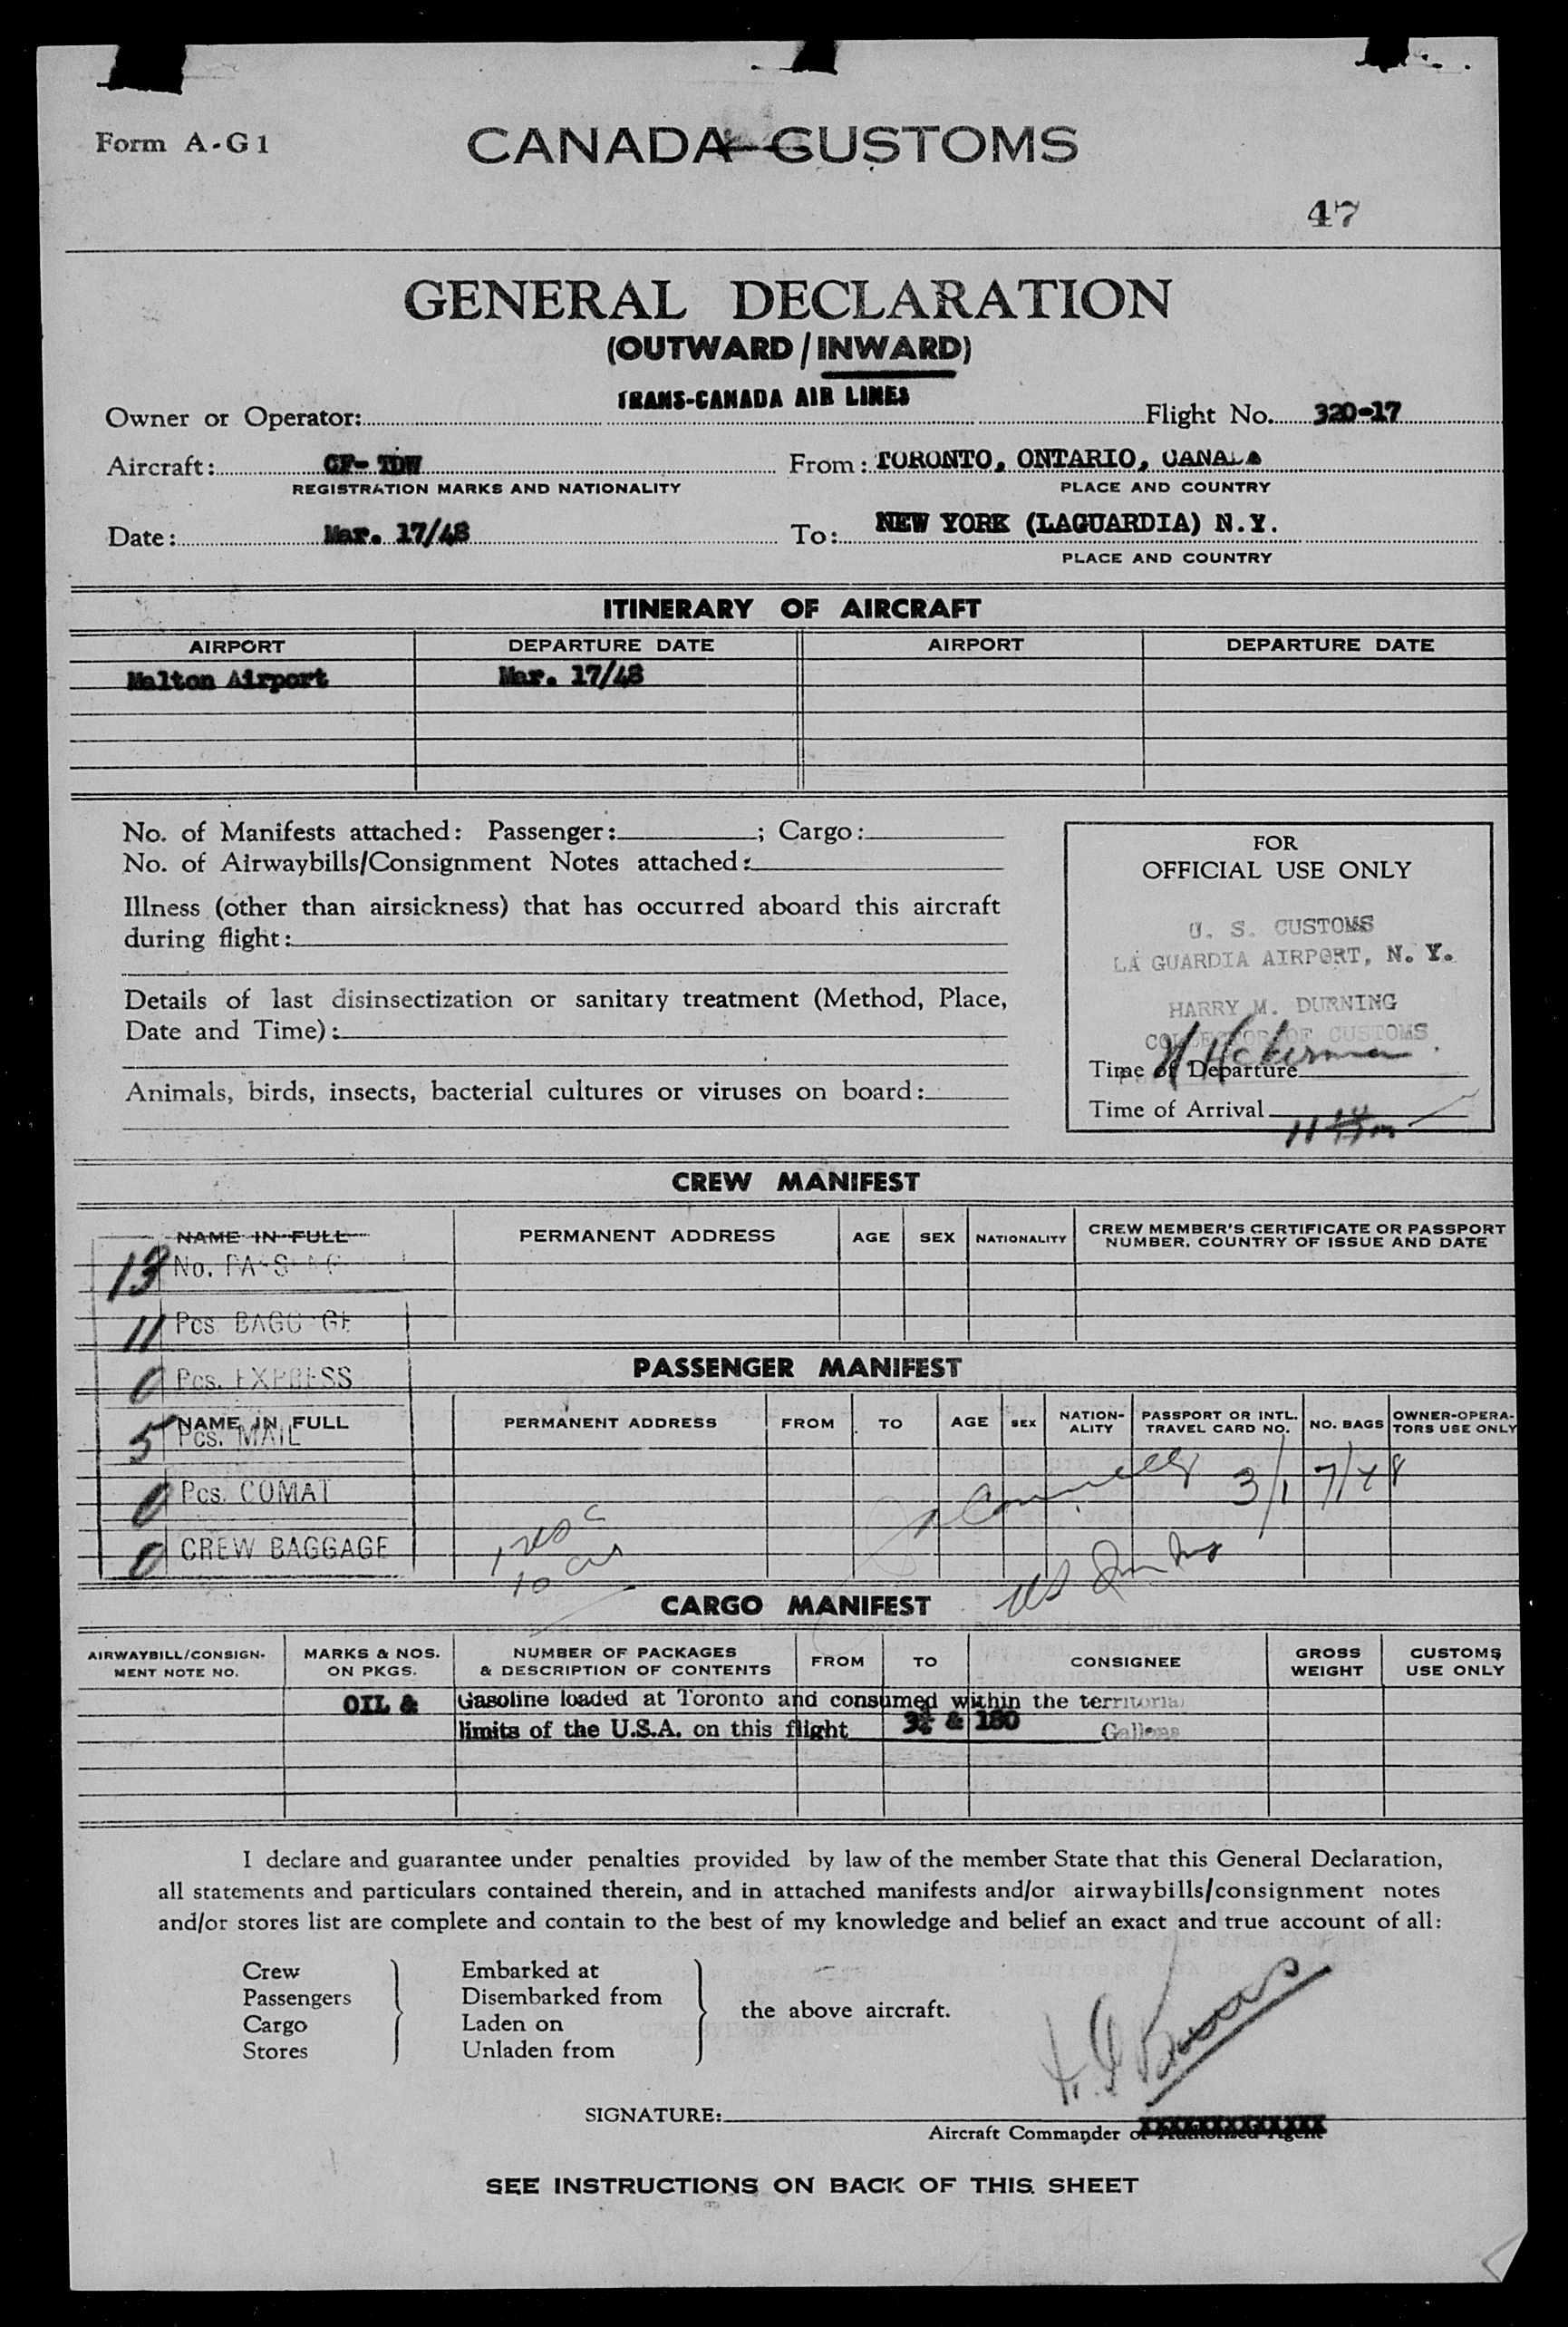 Form A-G1
CANADA CUSTOMS
47
GENERAL DECLARATION
(OUTWARD/INWARD)
TRANS-CANADA AIR LINES
Owner or Operator: Flight No. 320-17
Aircraft: CF- TDW From: TORONTO, ONTARIO, CANADA
REGISTRATION MARKS AND NATIONALITY PLACE AND COUNTRY
Date: Mar. 17/48 To: NEW YORK (LAGUARDIA) N.Y.
PLACE AND COUNTRY
ITINERARY OF AIRCRAFT
AIRPORT DEPARTURE DATE AIRPORT DEPARTURE DATE
Malton Airport Mar. 17/48
No. of Manifests attached: Passenger: ; Cargo:
No. of Airwaybills/Consignment Notes attached:
Illness (other than airsickness) that has occurred aboard this aircraft
during flight:
Details of last disinsectization or sanitary treatment (Method, Place,
Date and Time):
Animals, birds, insects, bacterial cultures or viruses on board:
FOR
OFFICIAL USE ONLY
U. S. CUSTOMS
LA GUARDIA AIRPORT, N. Y.
HARRY M. DURNING
COLLECTOR OF CUSTOMS
Time of Departure
Time of Arrival
CREW MANIFEST
NAME IN FULL PERMANENT ADDRESS AGE SEX NATIONALITY CREW MEMBER'S CERTIFICATE OR PASSPORT
NUMBER, COUNTRY OF ISSUE AND DATE
13 No.
11 Pcs. BAGGAGE
0 Pcs. EXPRESS
5 Pcs. MAIL
0 Pcs. COMAT
0 CREW BAGGAGE
PASSENGER MANIFEST
NAME IN FULL PERMANENT ADDRESS FROM TO AGE SEX NATION-
ALITY PASSPORT OR INTL.
TRAVEL CARD NO. NO. BAGS OWNER-OPERA-
TORS USE ONLY
3/17/48
CARGO MANIFEST
AIRWAYBILL/CONSIGN-
MENT NOTE NO. MARKS & NOS.
ON PKGS. NUMBER OF PACKAGES
& DESCRIPTION OF CONTENTS FROM TO CONSIGNEE GROSS
WEIGHT CUSTOMS
USE ONLY
OIL & Gasoline loaded at Toronto and consumed within the territorial
limits of the U.S.A. on this flight & 180 Gallons
I declare and guarantee under penalties provided by law of the member State that this General Declaration,
all statements and particulars contained therein, and in attached manifests and/or airwaybills/consignment notes
and/or stores list are complete and contain to the best of my knowledge and belief an exact and true account of all:
Crew Embarked at
Passengers Disembarked from the above aircraft.
Cargo Laden on
Stores Unladen from
SIGNATURE:
Aircraft Commander or Authorized Agent
SEE INSTRUCTIONS ON BACK OF THIS SHEET